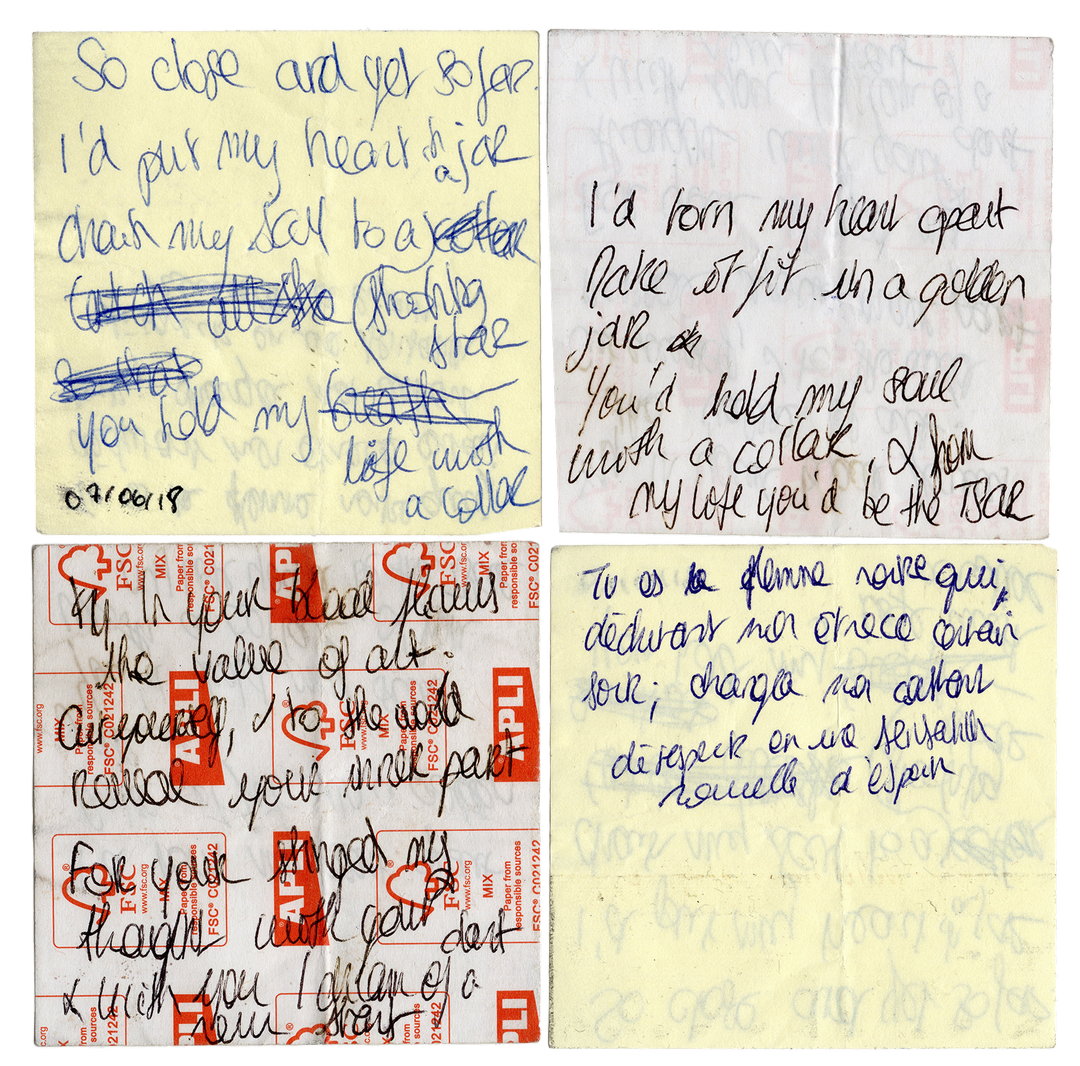 So close and yet so far.
I'd put my heart in
a jar
chain my soul to a
shooting
star
you hold my
life with
a collar
07/06/18
I'd torn my heart apart
Make it fit in a golden
jar
You'd hold my soul
with a collar, & from
my life you'd be the TSAR
in your blood flows
the value of art.
yourself, & to the world
reveal your inner part
For your my
thought with your dart
& with you I dream of a
new start
FSC
www.fsc.org
MIX
Paper from
responsible sources
FSC® C021242
APLI
Tu es la flamme noire qui,
déchirant mon
sort, changea mon
en une sensation
nouvelle d'espoir